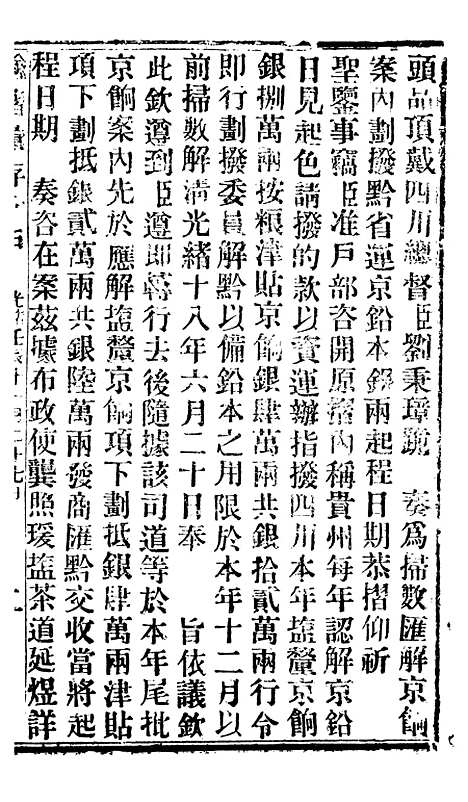 頭品頂戴四川總督臣劉秉璋跪　奏爲掃數匯解京餉
案內劃撥黔省運京鉛本銀兩起程日期恭摺仰祈
聖鑒事竊臣准戶部咨開原摺內稱貴州每年認解京鉛
日見起色請撥的款以資運辦指撥四川本年塩釐京餉
銀捌萬兩按粮津貼京餉銀肆萬兩共銀拾貳萬兩行令
即行劃撥委員解黔以備鉛本之用限於本年十二月以
前掃數解淸光緒十八年六月二十日奉　旨依議欽
此欽遵到臣遵即轉行去後隨據該司道等於本年尾批
京餉案內先於應解塩釐京餉項下劃抵銀肆萬兩津貼
項下劃抵銀貳萬兩共銀陸萬兩發商匯黔交收當將起
程日期　奏咨在案茲據布政使龔照瑗塩茶道延煜詳